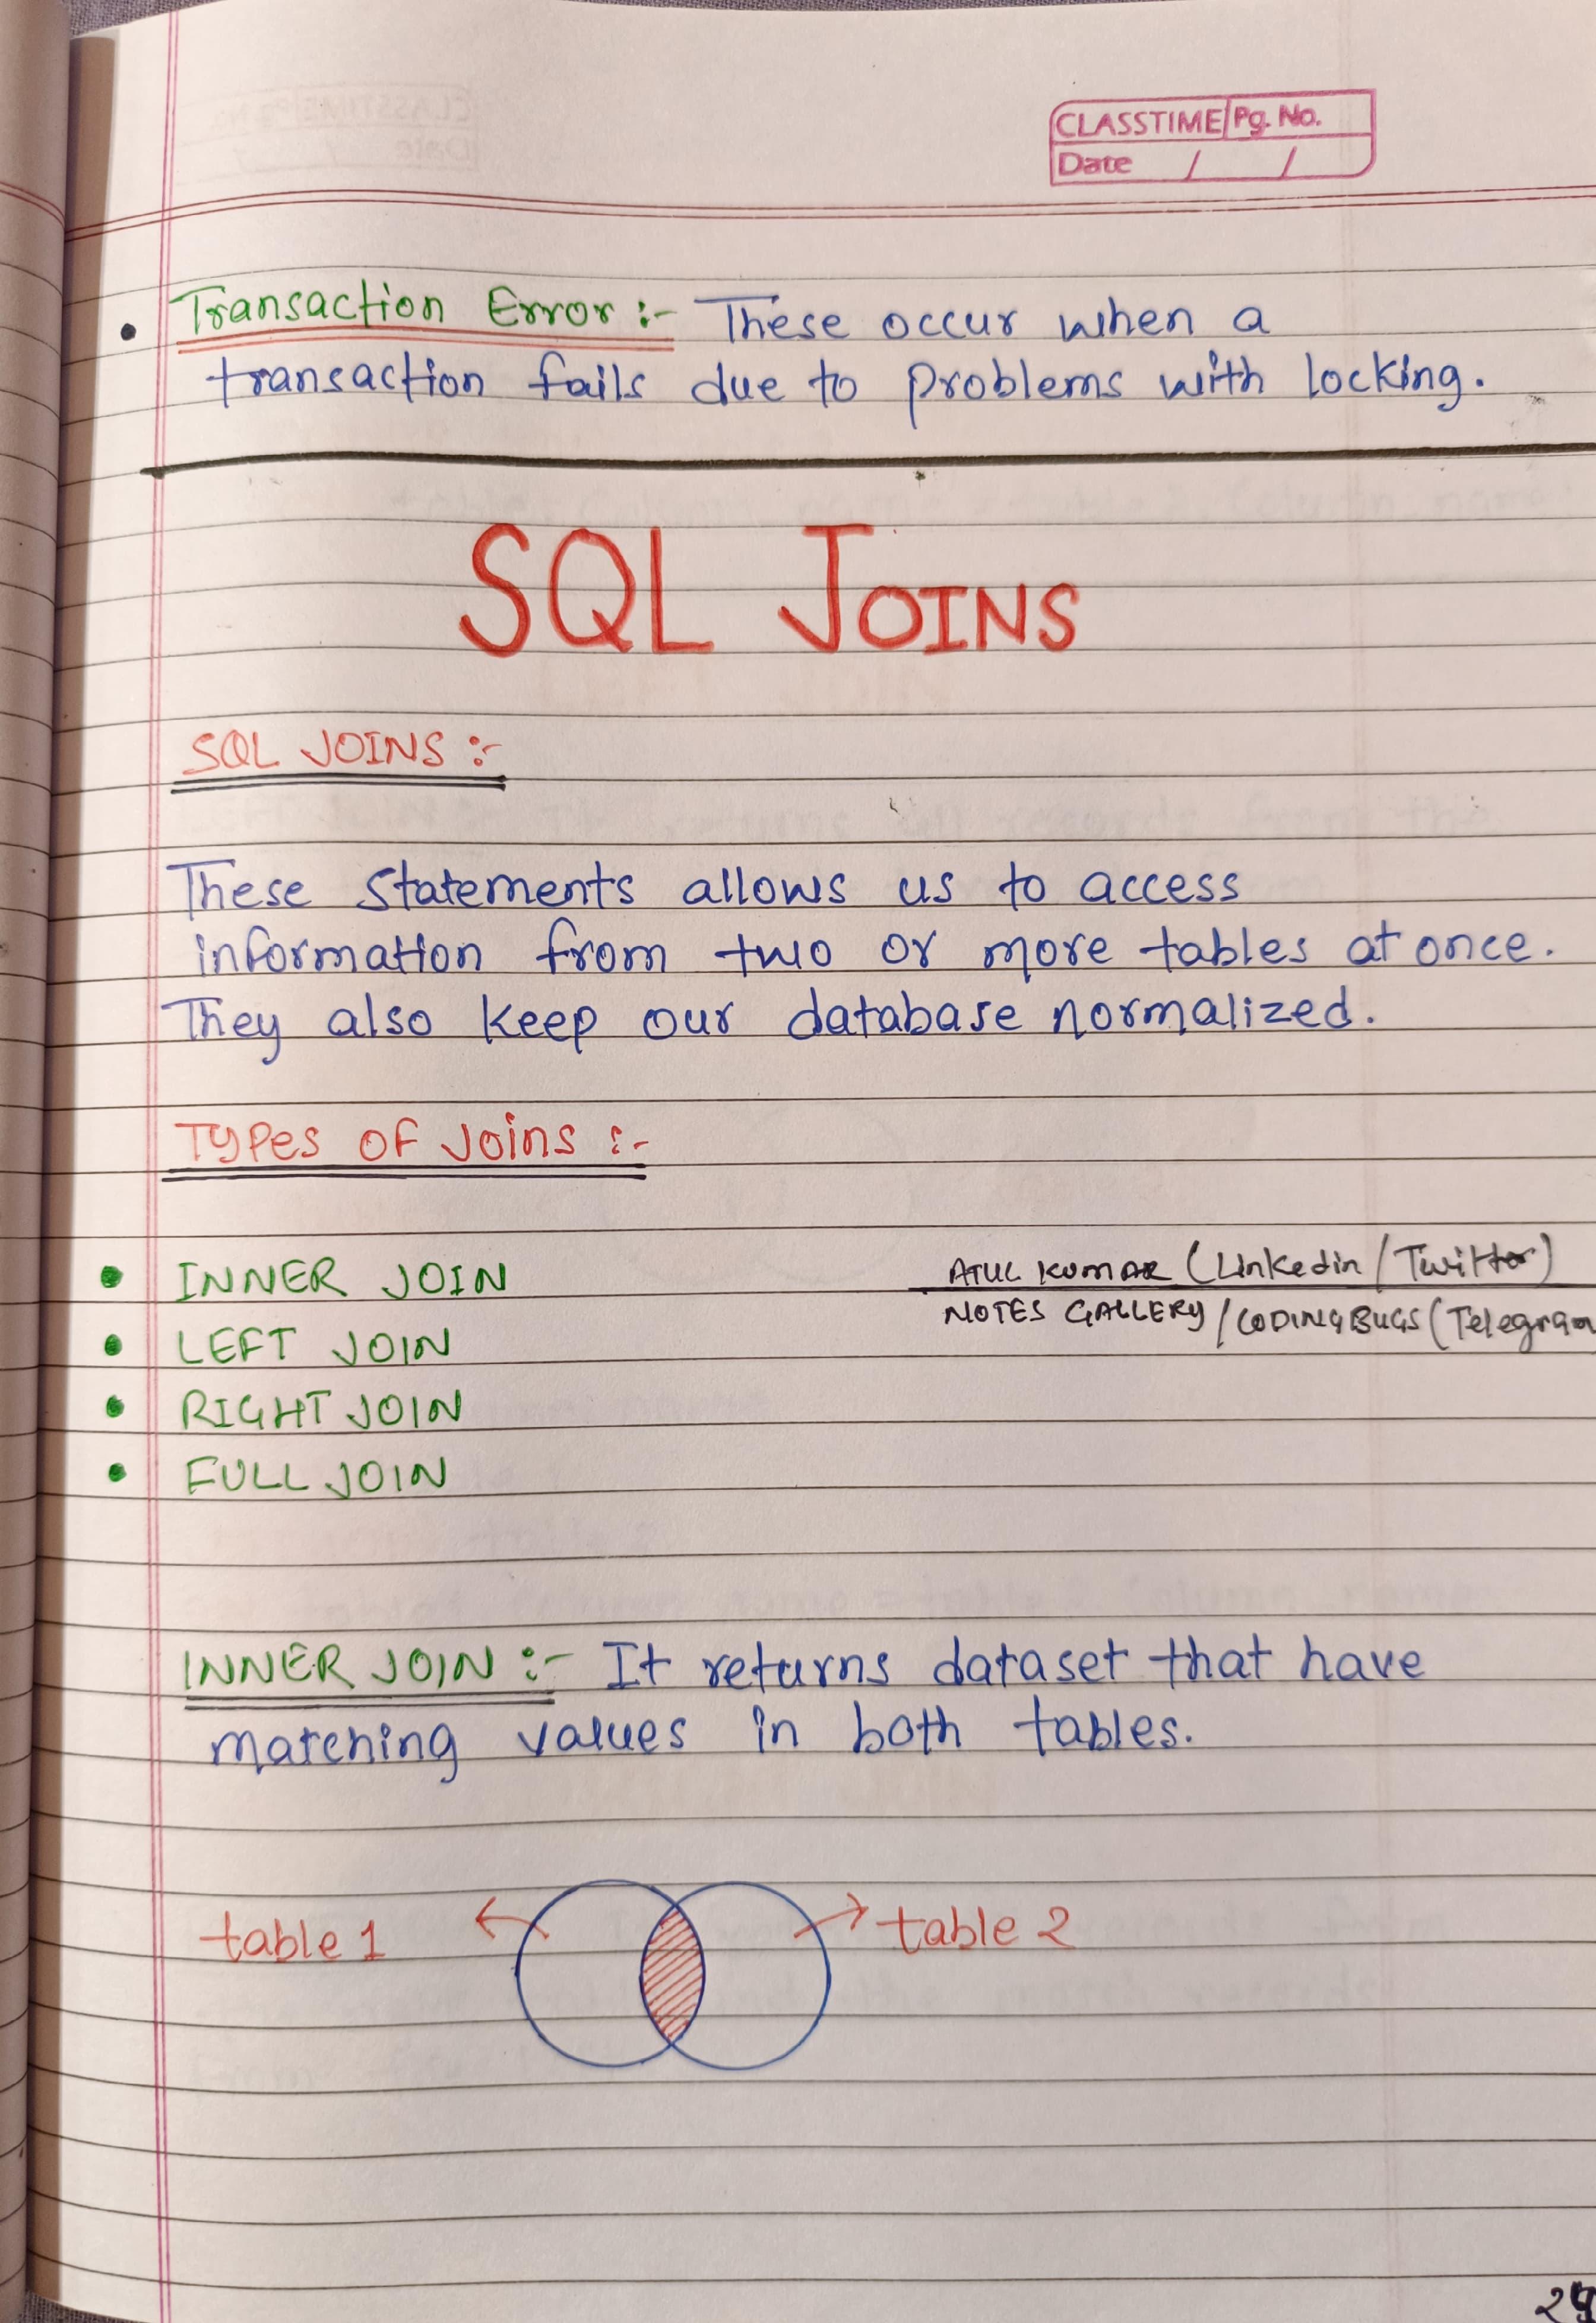 CLASSTIME Pg. No.
Date / /
• Transaction Error :- These occur when a
transaction fails due to problems with locking.
SQL JOINS
SQL JOINS :-
These statements allows us to access
information from two or more tables at once.
They also keep our database normalized.
Types of Joins :-
• INNER JOIN
ATUL KUMAR (Linkedin / Twitter)
NOTES GALLERY / CODINGBUGS (Telegram
• LEFT JOIN
• RIGHT JOIN
• FULL JOIN
INNER JOIN :- It returns dataset that have
matching values in both tables.
table 1
table 2